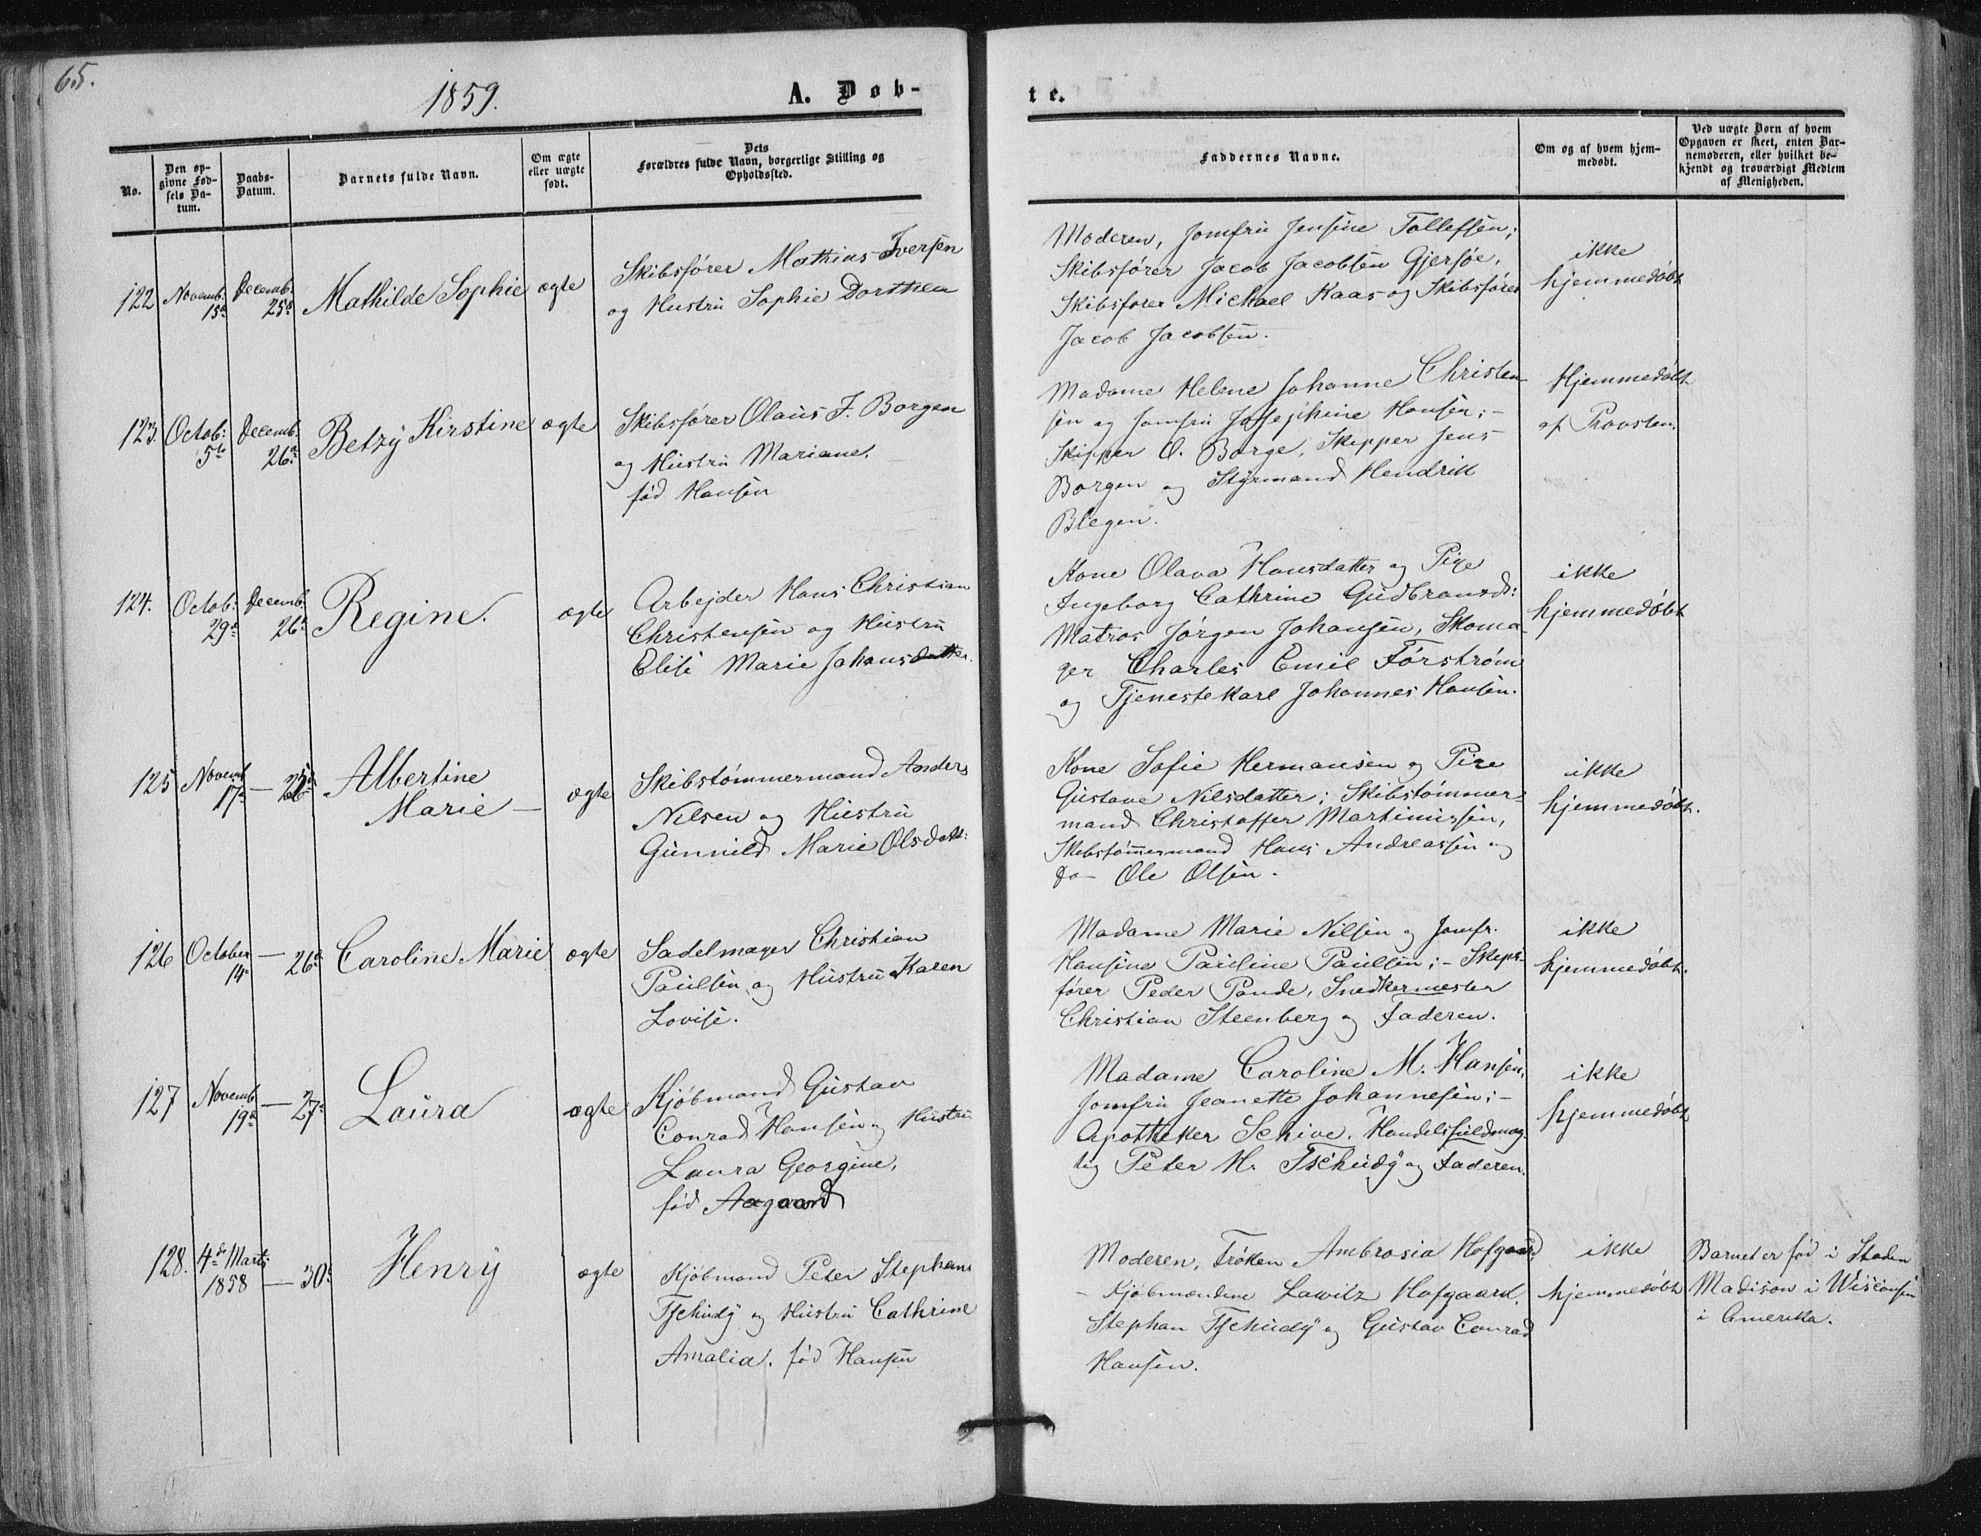 65.
1859.
A. Døb-
te.
No.
Den opgivne Fødsels Datum.
Daabs-Datum.
Barnets fulde Navn.
Om ægte eller uægte født.
Dets Forældres fulde Navn, borgerlige Stilling og Opholdssted.
Faddernes Navne.
Om og af hvem hjemmedøbt.
Ved uægte Børn af hvem Opgaven er skeet, enten Barnemoderen, eller hvilket bekjendt og troværdigt Medlem af Menigheden.
122 Novemb. 15de Decemb. 25de Mathilde Sophie ægte
Skibsfører Mathias Iversen
og Hustru Sophie Dorthea
Moderen, Jomfru Jensine Tollefsen;
Skibsfører Jacob Jacobsen Gjersøe,
Skibsfører Michael Kaas og Skibsfører
Jacob Jacobsen.
ikke
hjemmedøbt
123. Octob: 5te Decemb. 26de Betzy Kirstine ægte
Skibsfører Olaus F. Borgen
og Hustru Mariane,
fød Hansen
Madame Helene Johanne Christen-
sen og Jomfru Josephine Hansen; -
Skipper O. Borge, Skipper Jens
Borgen og Styrmand Hendrik
Blegen.
Hjemmedøbt
af Provsten.
124. Octob: 29de Decemb. 26de Regine. ægte
Arbejder Hans Christian
Christensen og Hustru
Elise Marie Johansdatter.
Kone Olava Hansdatter og Pige
Ingeborg Cathrine Gudbrandsd:
Matros Jørgen Johansen, Skoma-
ger Charles Emil Førstrøm
og Tjenestekarl Johannes Hansen.
ikke
hjemmedøbt
125 Novemb 17de — 26de Albertine
Marie — ægte
Skibstømmermand Anders
Nilsen og Hustru
Gunnild Marie Olsdatt:
Kone Sofie Hermansen og Pige
Gustave Nilsdatter; Skibstømmer-
mand Christoffer Martinussen,
Skibstømmermand Hans Andreassen og
do- Ole Olsen.
ikke
hjemmedøbt.
126 October 14de — 26de Caroline Marie ægte
Sadelmager Christian
Paulsen og Hustru Karen
Lovise.
Madame Marie Nilsen og Jomfr.
Hansine Pauline Paulsen; - Skips-
fører Peder Pande, Snedkermester
Christian Steenberg og Faderen.
ikke
hjemmedøbt.
127 Novemb 19de — 27de Laura ægte
Kjøbmand Gustav
Conrad Hansen og Hustru
Laura Georgine,
fød Aagaard
Madame Caroline M. Hansen,
Jomfru Jeanette Johannesen; -
Apotheker Schive, Handelsfuldmæg-
tig Peter H. Tschudy og Faderen.
ikke
hjemmedøbt
128. 4de Marts 1858 — 30de Henry ægte
Kjøbmand Peter Stephan
Tschudy og Hustru Cathrine
Amalia, fød Hansen
Moderen, Frøken Ambrosia Hofgaard
- Kjøbmændene Lawitz Hofgaard,
Stephan Tschudy og Gustav Conrad
Hansen.
ikke
hjemmedøbt
Barnet er fød i Staden
Madison i Wisconsin
i Amerika.